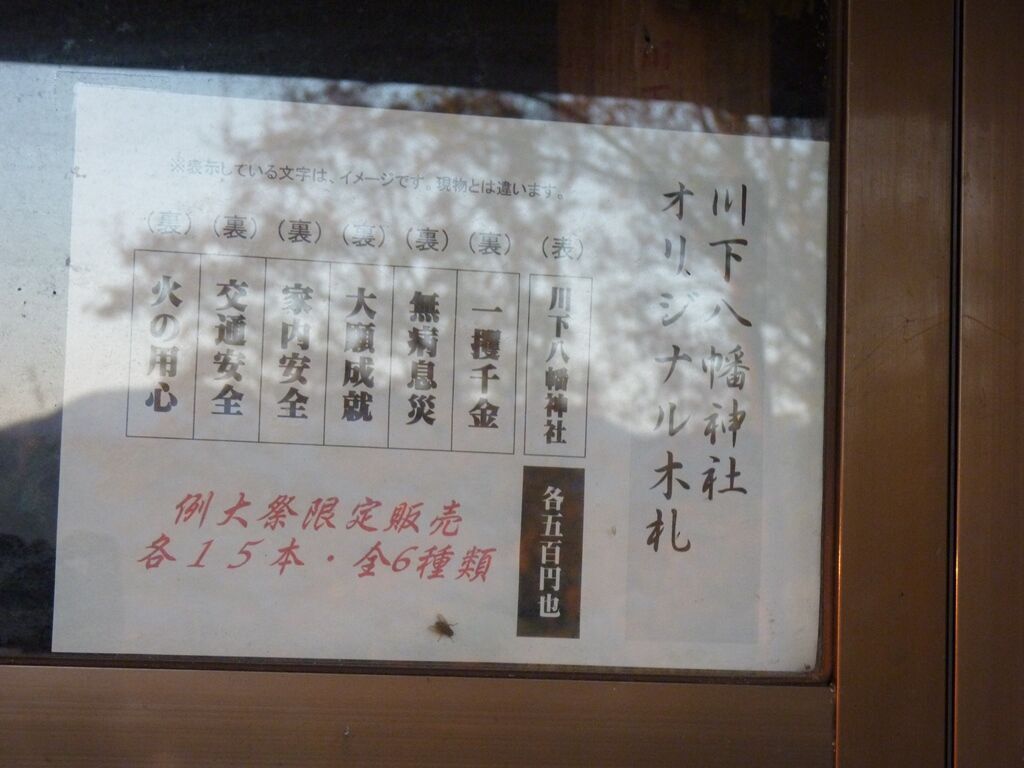 川下八幡神社
オリジナル木札
※表示している文字は、イメージです。現物とは違います。
（表）
川下八幡神社
（裏）
一攫千金
（裏）
無病息災
（裏）
大願成就
（裏）
家内安全
（裏）
交通安全
（裏）
火の用心
各五百円也
例大祭限定販売
各１５本・全6種類